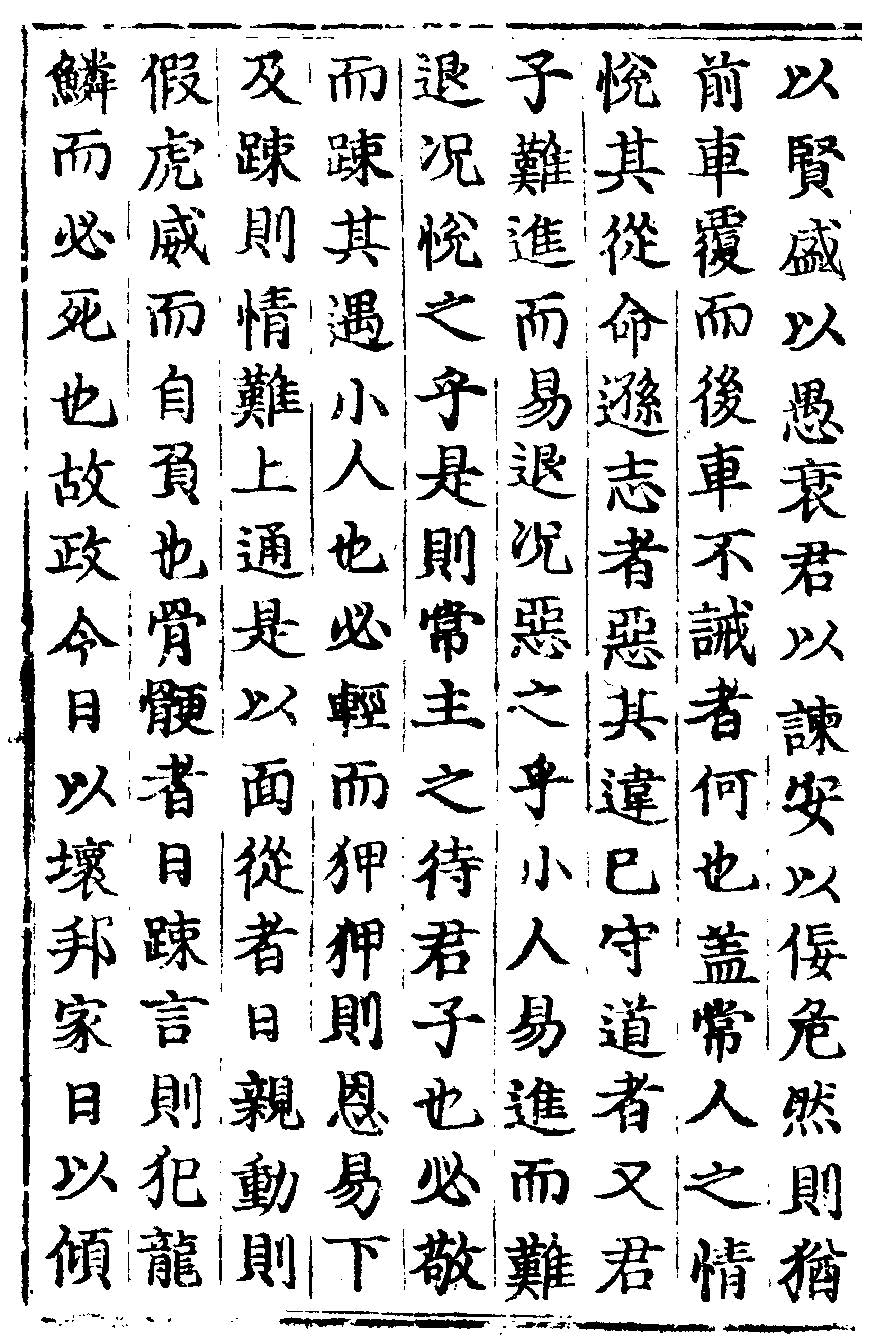 以賢盛以愚衰君以諫安以佞危然則猶
前車覆而後車不誡者何也蓋常人之情
悅其從命遜志者惡其違已守道者又君
子難進而易退况惡之乎小人易進而難
退况悅之乎是則常主之待君子也必敬
而踈其遇小人也必輕而狎狎則恩易下
及踈則情難上通是以面從者日親動則
假虎威而自負也骨鯁者日踈言則犯龍
鱗而必死也故政令日以壞邦家日以傾